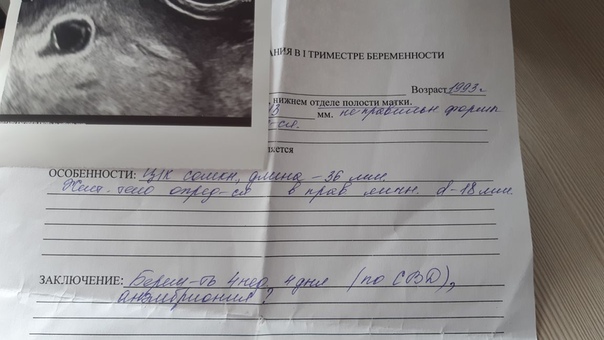 АНИЯ В I ТРИМЕСТРЕ БЕРЕМЕННОСТИ
Возраст 1993 г
, нижнем отделе полости матки.
13 мм. неправильн формы
ОСОБЕННОСТИ: ЦК сомкн, длина - 36 мм.
Желт. тело опред-ся в прав яичн. d - 18 мм.
ЗАКЛЮЧЕНИЕ: Берем-ть 4 нед. 4 дня (по СВД),
анэмбриония?